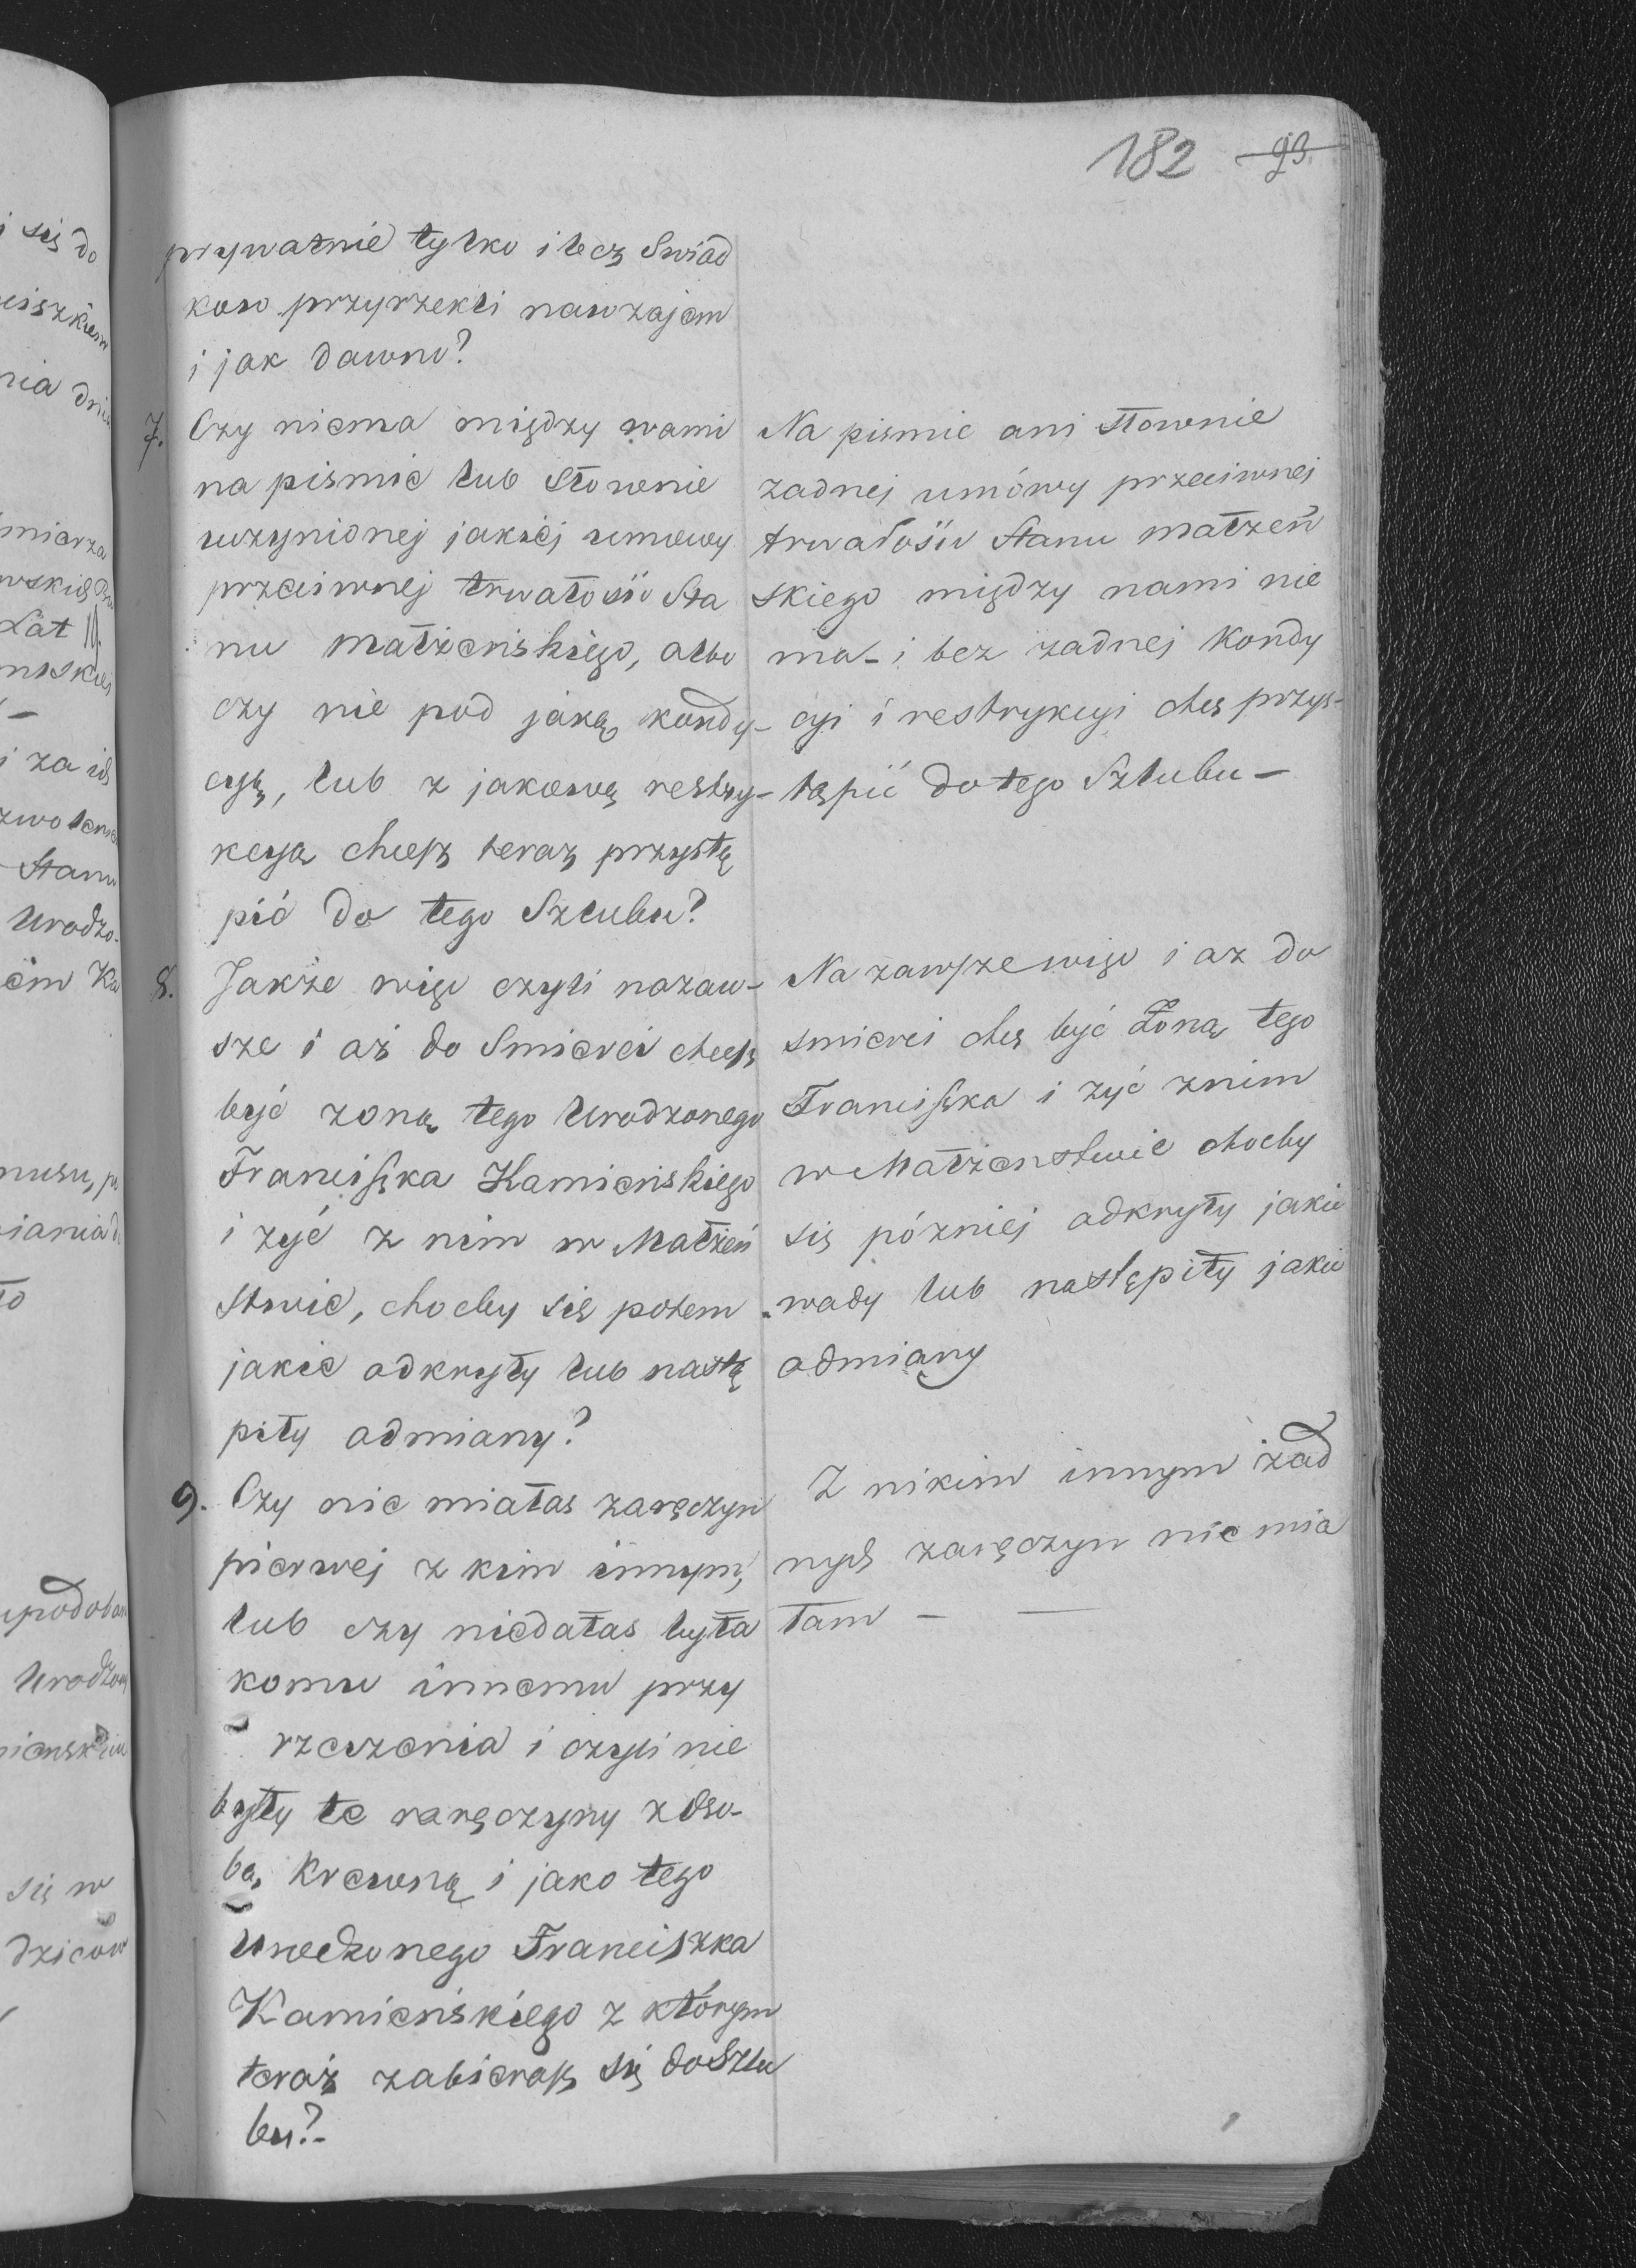 182 93
prywatnie tylko i bez Swiad
kow przyrzekli nawzajem
i jak dawno?
7. Czy niema między wami
na pismie lub Słownie
uczynionej jakiej umowy
przeciwnej trwałości Sta
nu małżenskiego, albo
czy nie pod jaką kondy-
cyą, lub z jakową restry-
kcyą chcesz teraz przystą
pić do tego Szlubu?
Na pismie ani słownie
zadnej umówy przeciwnej
trwałości Stanu małżeń
skiego między nami nie
ma - i bez zadnej Kondy
cyi i restrykcyi chcę przys-
tąpić do tego Szlubu -
8. Jakże więc czyli nazaw-
sze i aż do Smierci chcesz
być zoną tego Urodzonego
Franciszka Kamienskiego
i zyć z nim w Małżeń
stwie, choćby się potem
jakie odkryły lub nastą
piły odmiany?
Na zawsze więc i az do
smierci chcę być Zoną tego
Franciszka i zyć znim
w Małzenstwie choćby
się pózniej odkryły jakie
wady lub nastąpiły jakie
odmiany
9. Czy nie miałas zaręczyn
pierwej z kim innym,
lub czy niedałas była
komu innemu przy
rzeczenia i czyli nie
były te zaręczyny z Oso-
bą Krewną i jako tego
Urodzonego Franciszka
Kamieńskiego z którym
teraz zabierasz się do Szlu
bu? -
Z nikim innym żad
nych zaręczyn nie mia
łam - -